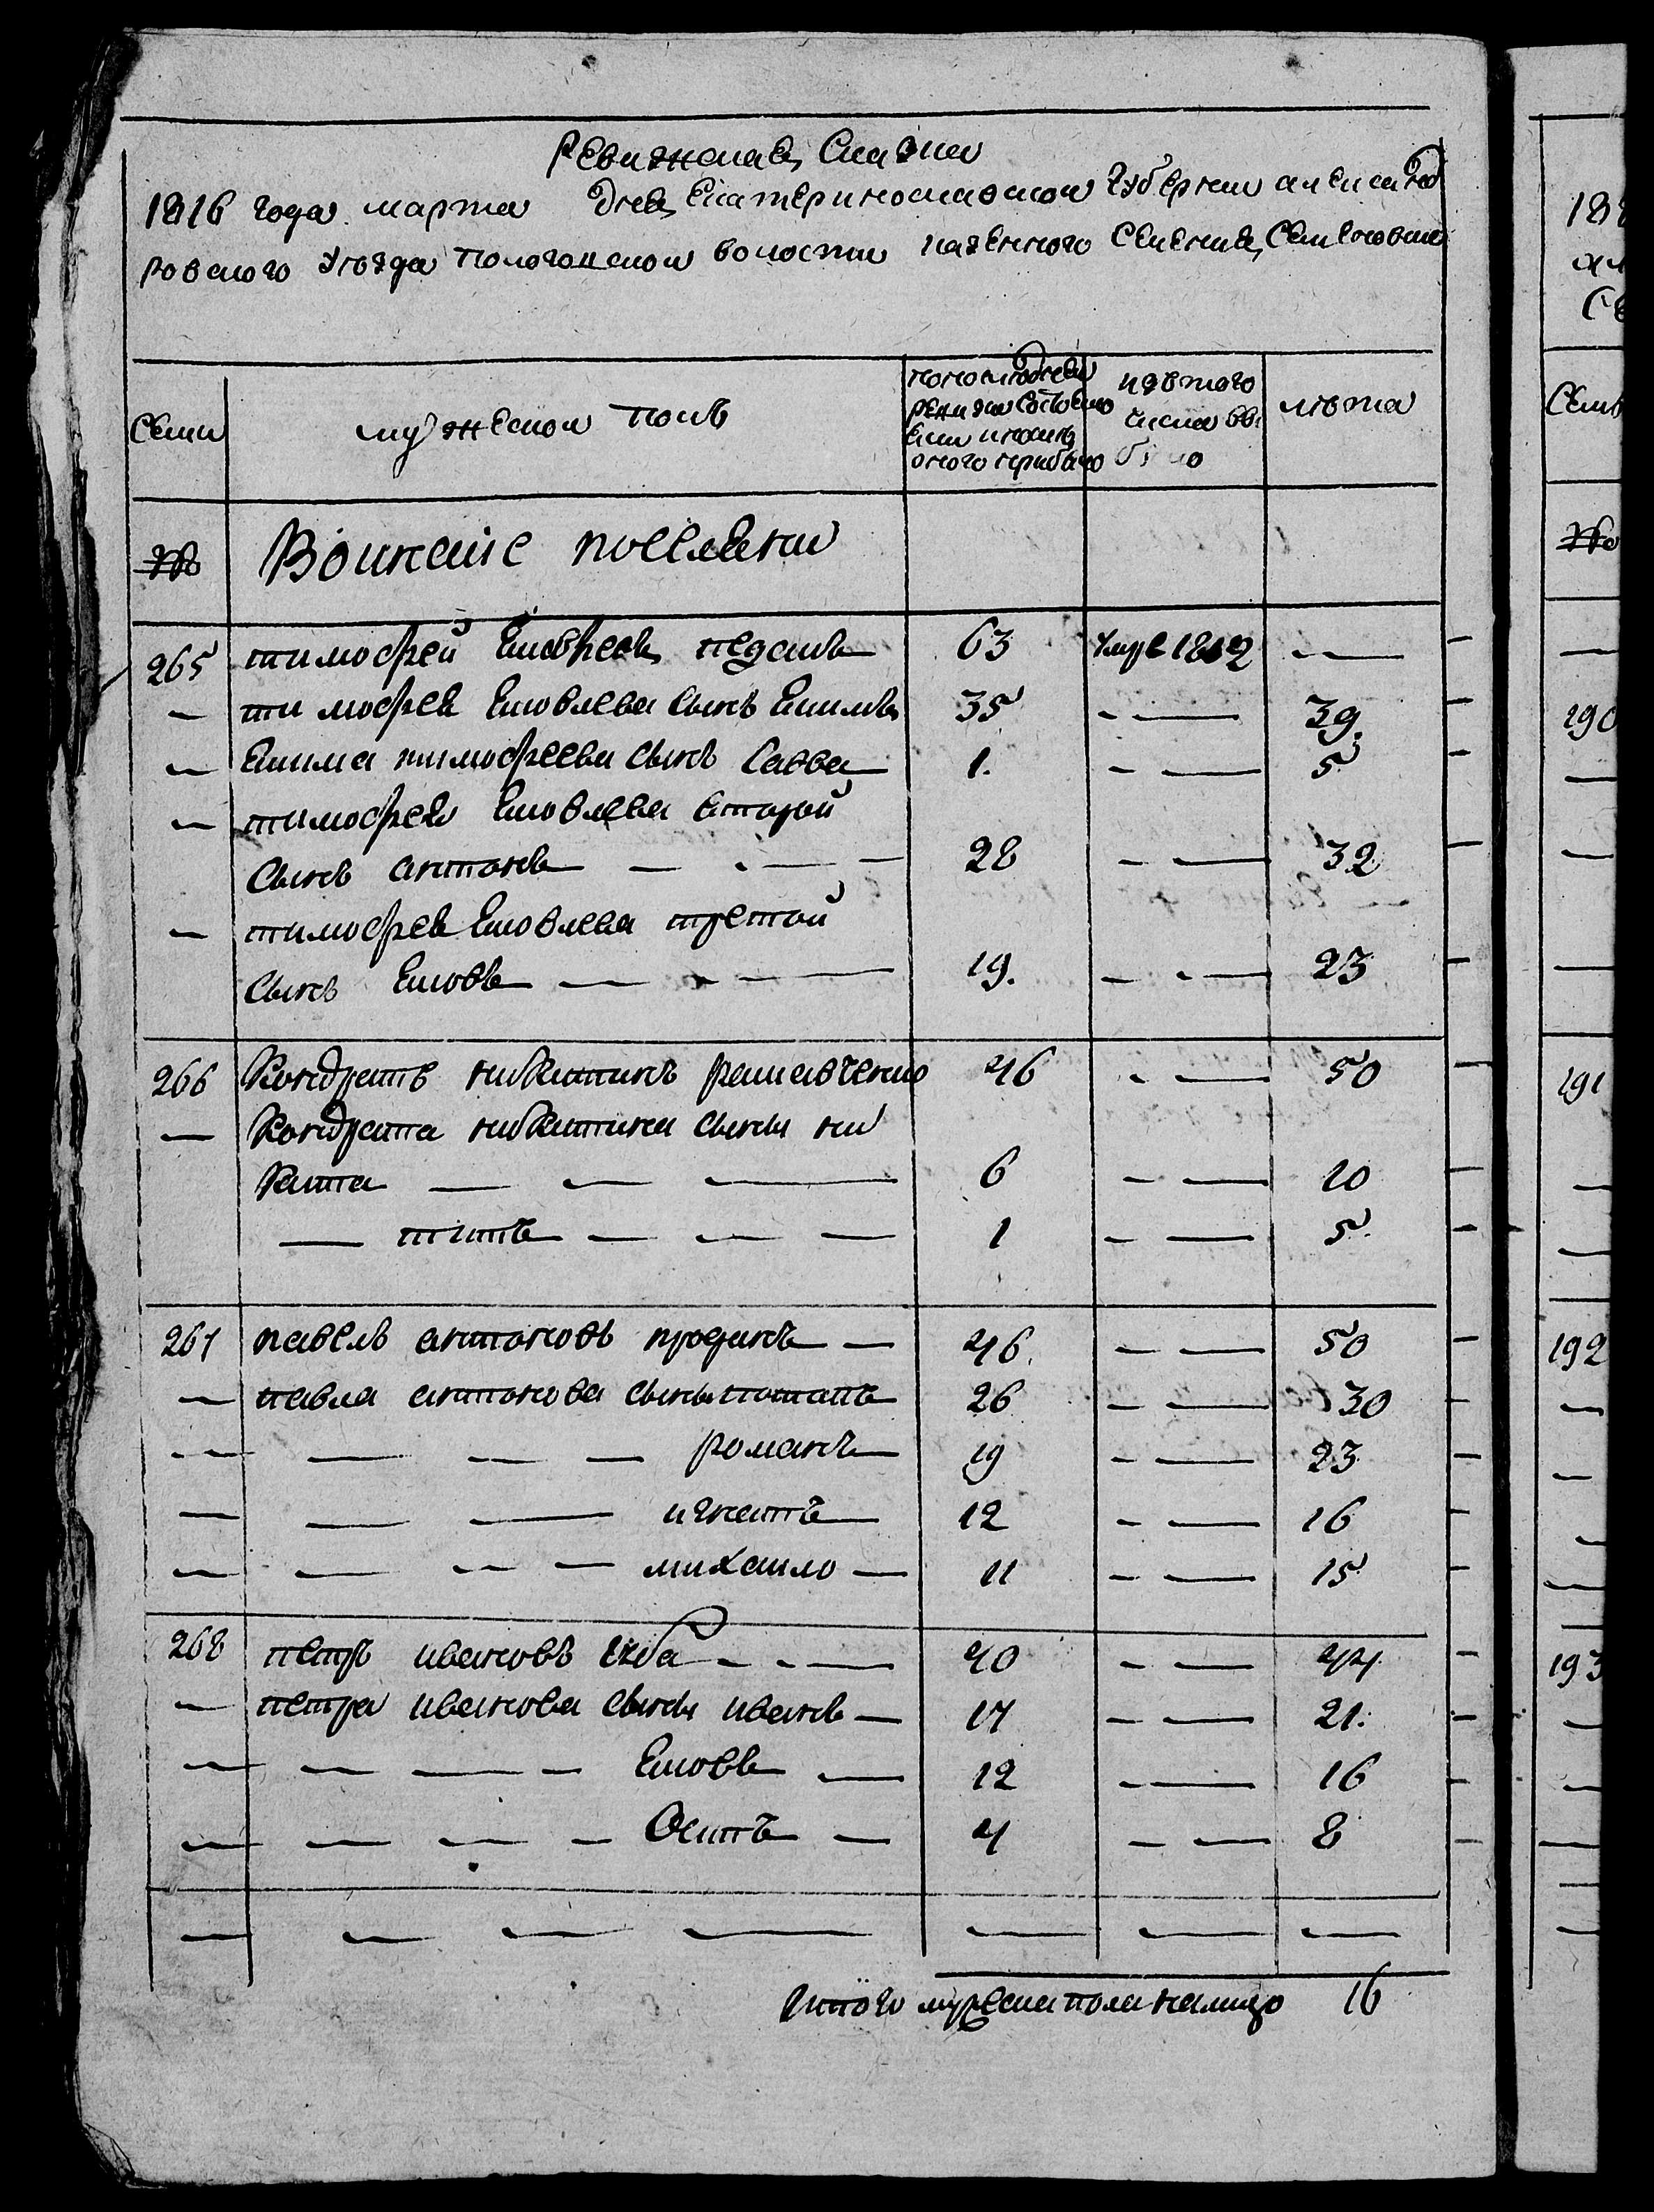 Ревижская Скаска
1816 года марта дня Екатеринославской Губернии александ
ровскаго Уѣзда Пологовской волости казенного Селения Семеновки
Семьи
мужеской полъ
по последней
ревизии состояло
или после
оного прибыло
изъ того
числа вы
было
лѣта
№
Воинские поселяни
265 тимофей Яковлевъ 63 Умре 1812 —
— тимофея Яковлева сынъ Якимъ 35 — — 39.
— Якима тимофеева сынъ Савва 1. — — 5
— тимофея Яковлева вторый
сынъ антонъ — — — 28 — — 32
— тимофея Яковлева третой
сынъ Яковъ — — — 19. — — 23
266 Кондратъ никитинъ 46 — — 50
— Кондрата никитина сыны ни
кита — — — 6 — — 10
— титъ — — — 1 — — 5.
267 павелъ антоновъ — 46. — — 50
— павла антонова сыны потапъ 26 — — 30
— — — — романъ 19 — — 23
— — — игнатъ 12 — — 16
— — — — михаило — 11 — — 15
268 петръ ивановъ — — — 40 — — 44
— петра иванова сыны иванъ — 17 — — 21.
— — — — Яковъ — 12 — — 16
— — — — Осипъ — 4 — — 8
— — — — — — —
Итого мужеска пола налицо 16
188
Семьи
№
190
191
192
193